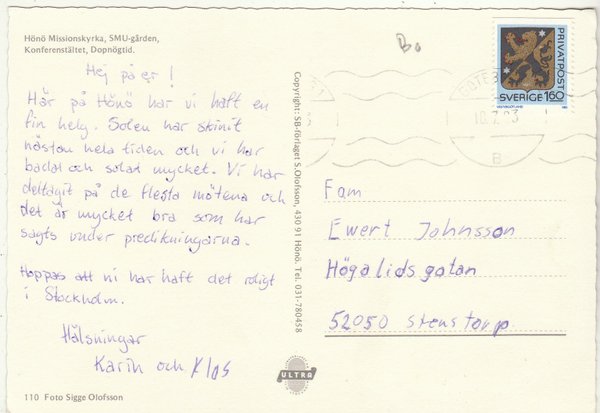 Hönö Missionskyrka, SMU-gården,
Konferenstältet, Dopnögtid.
Hej på er!
Här på Hönö har vi haft en
fin helg. Solen har skinit
nästan hela tiden och vi har
badat och solat mycket. Vi har
deltagit på de flesta mötena och
det är mycket bra som har
sagts under predikningarna.
Hoppas att ni har haft det roligt
i Stockholm.
Hälsningar
Karin och Klas
110 Foto Sigge Olofsson
Copyright: SB-förlaget S.Olofsson, 430 91 Hönö. Tel. 031-780458
ULTRA
Bo
PRIVATPOST
SVERIGE 160
GÖTEB
10.7.83
B
Fam
Ewert Johnsson
Högalidsgatan
52050 Stenstorp